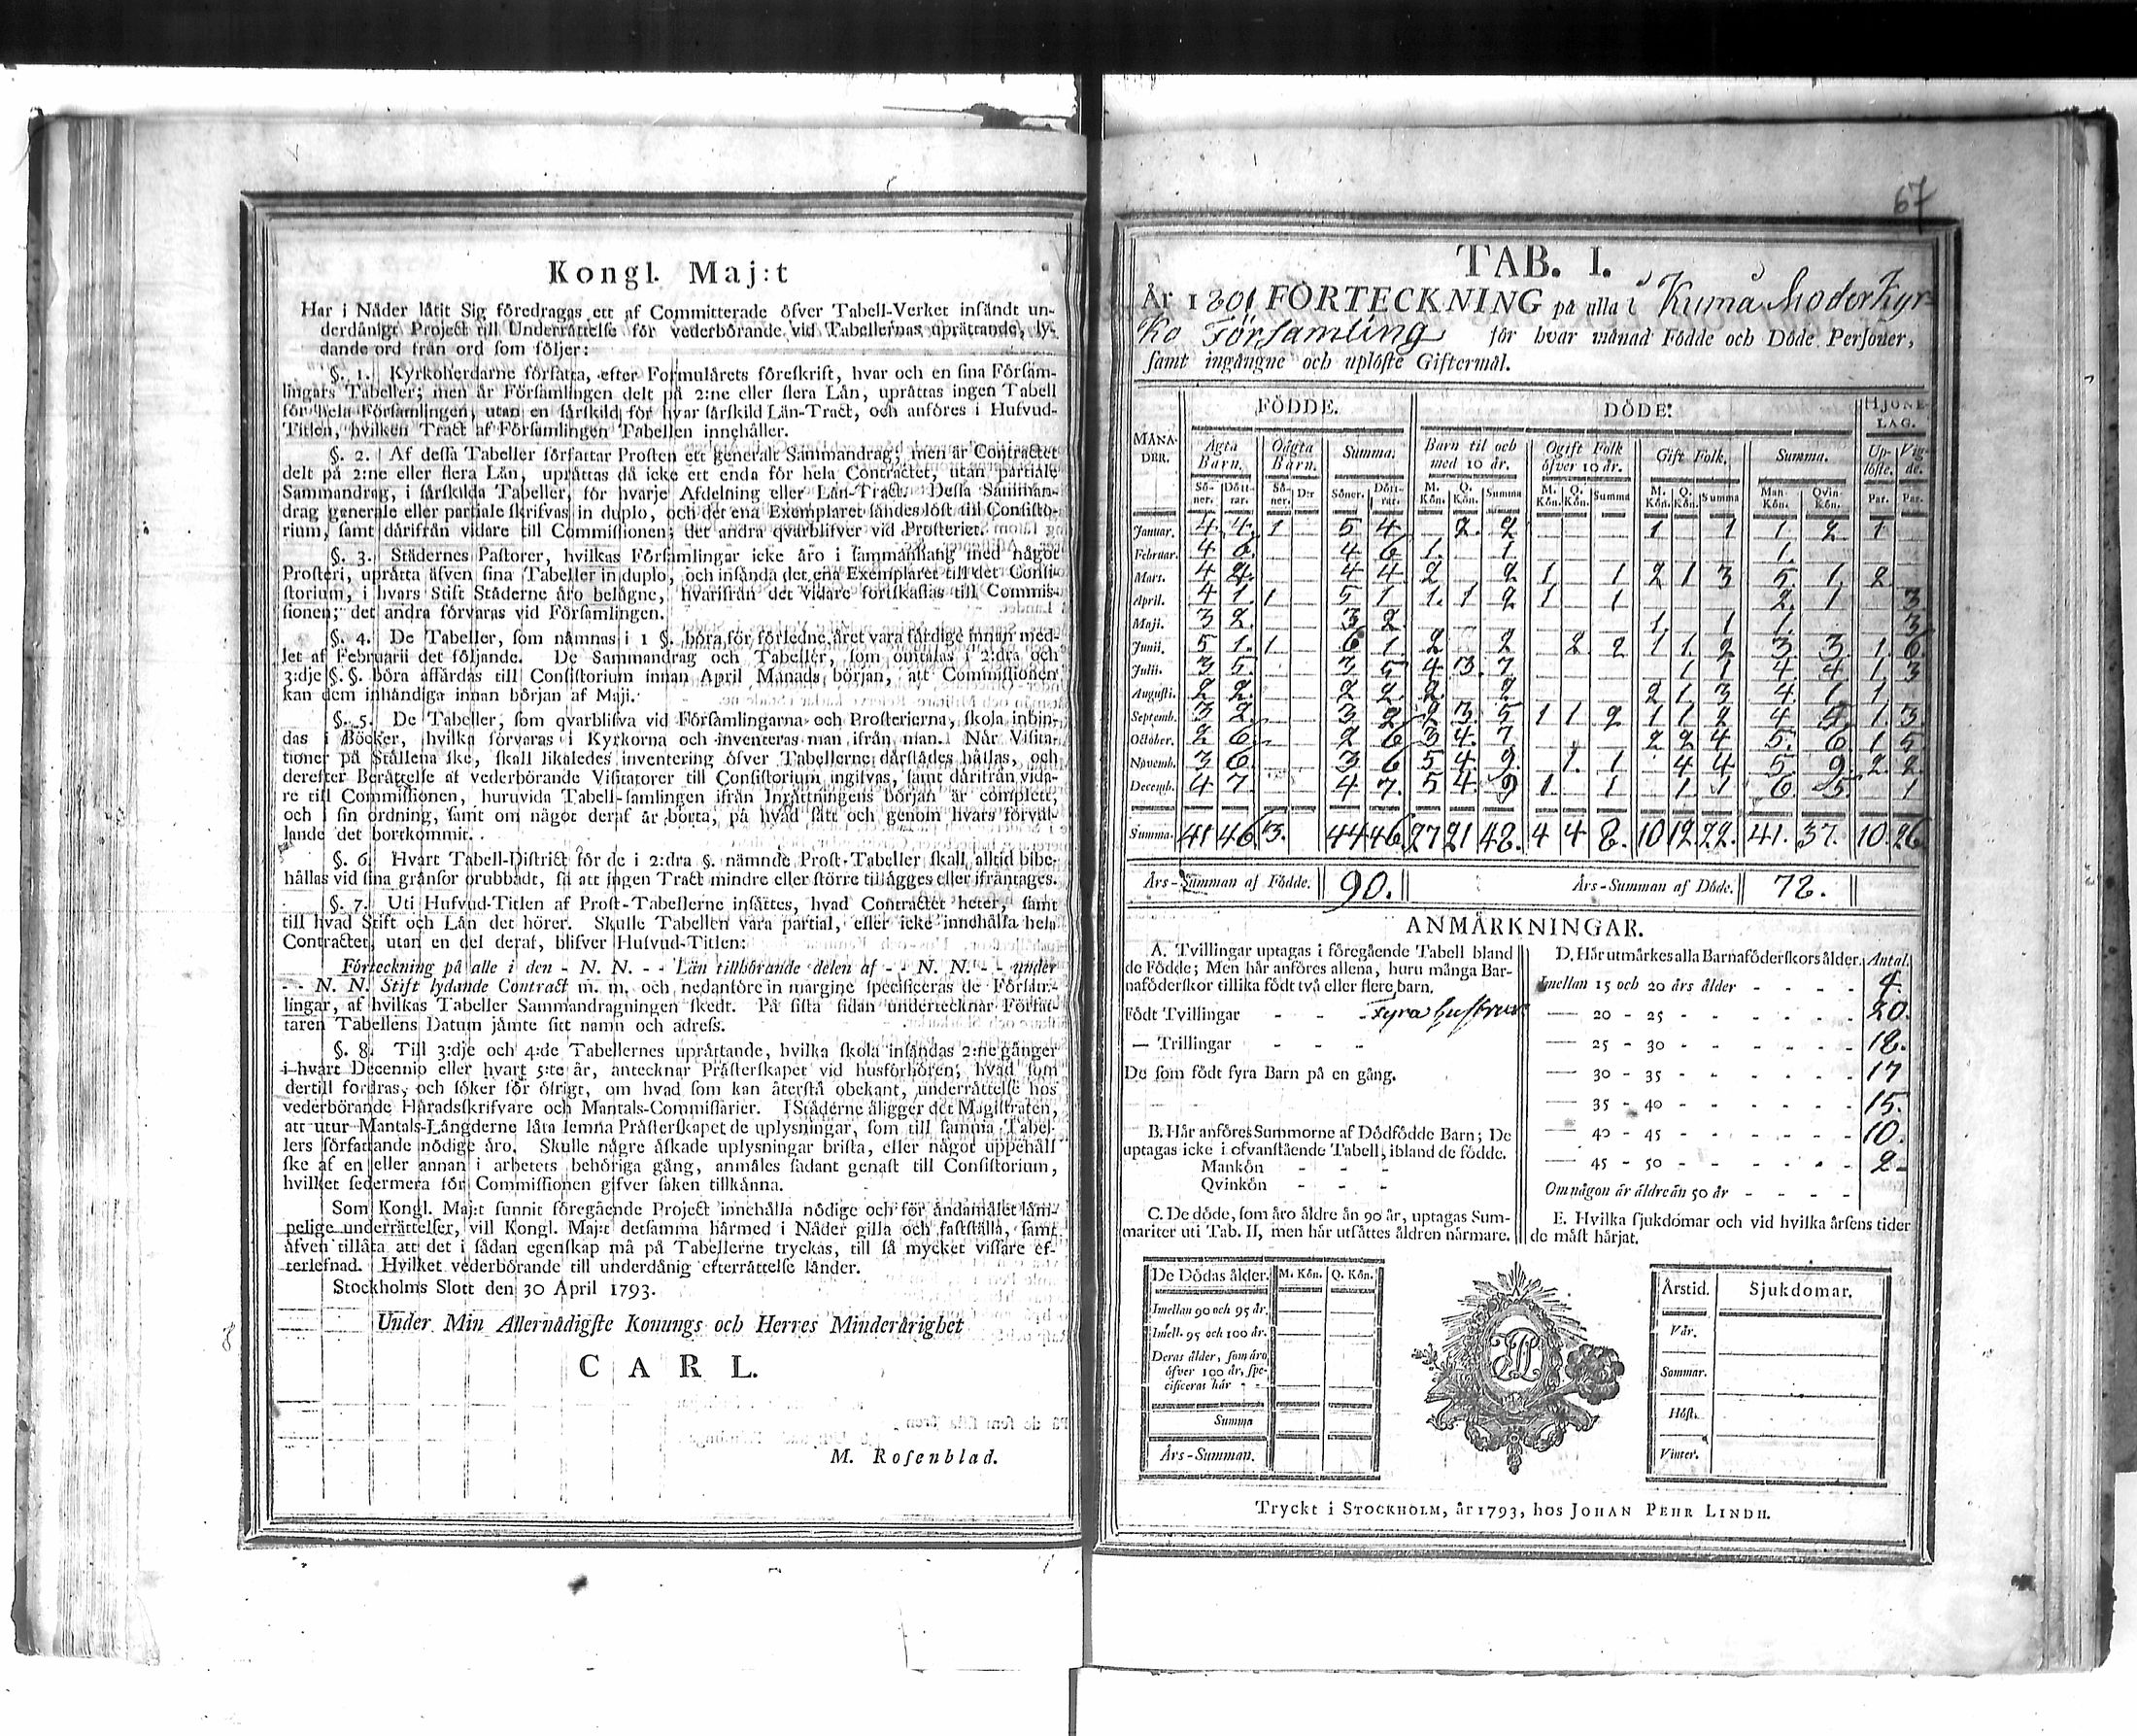 Kongl. Maj:t
Har i Nåder låtit Sig föredragas ett af Committerade öfver Tabell-Verket insändt un-
derdånigt Project till Underrättelse för vederbörande vid Tabellernas uprättande, ly-
dande ord från ord som följer:
§. 1. Kyrkoherdarne författa, efter Formulärets föreskrift, hvar och en sina Försam-
lingars Tabeller; men är Församlingen delt på 2:ne eller flera Län, uprättas ingen Tabell
för hela Församlingen, utan en särskild för hvar särskild Län-Tract, och anföres i Hufvud-
Titlen, hvilken Tract af Församlingen Tabellen innehåller.
§. 2. Af dessa Tabeller författar Prosten ett generalt Sammandrag; men är Contractet
delt på 2:ne eller flera Län, uprättas då icke ett enda för hela Contractet, utan partiale
Sammandrag, i särskilda Tabeller, för hvarje Afdelning eller Län-Tract. Dessa Samman-
drag generale eller partiale skrifvas in duplo, och det ena Exemplaret sändes löst till Consisto-
rium, samt därifrån vidare till Commissionen; det andra qvarblifver vid Prosteriet.
§. 3. Städernes Pastorer, hvilkas Församlingar icke äro i sammanhang med något
Prosteri, uprätta äfven sina Tabeller in duplo, och insända det ena Exemplaret till det Consi-
storium, i hvars Stift Städerne äro belägne, hvarifrån det vidare fortskaffas till Commis-
sionen; det andra förvaras vid Församlingen.
§. 4. De Tabeller, som nämnas i 1 §. böra för förledne året vara färdige innan med-
let af Februarii det följande. De Sammandrag och Tabeller, som omtalas i 2:dra och
3:dje §. §. böra affärdas till Consistorium innan April Månads början, att Commissionen
kan dem inhändiga innan början af Maji.
§. 5. De Tabeller, som qvarblifva vid Församlingarna och Prosterierna, skola inbin-
das i Böcker, hvilka förvaras i Kyrkorna och inventeras man ifrån man. När Visita-
tioner på Ställena ske, skall likaledes inventering öfver Tabellerne därstädes hållas, och
derefter Berättelse af vederbörande Visitatorer till Consistorium ingifvas, samt därifrån vida-
re till Commissionen, huruvida Tabell-samlingen ifrån Inrättningens början är complett,
och i sin ordning, samt om något deraf är borta, på hvad sätt och genom hvars förvål-
lande det bortkommit.
§. 6. Hvart Tabell-District för de i 2:dra §. nämnde Prost-Tabeller skall alltid bibe-
hållas vid sina gränsor orubbadt, så att ingen Tract mindre eller större tillägges eller ifråntages.
§. 7. Uti Hufvud-Titlen af Prost-Tabellerne insättes, hvad Contractet heter, samt
till hvad Stift och Län det hörer. Skulle Tabellen vara partial, eller icke innehålla hela
Contractet, utan en del deraf, blifver Hufvud-Titlen:
Förteckning på alle i den - N. N. - - Län tillhörande delen af - - N. N. - - under
- - N. N. Stift lydande Contract m. m. och nedanföre in margine specificeras de Försam-
lingar, af hvilkas Tabeller Sammandragningen skedt. På sista sidan undertecknar Förfat-
taren Tabellens Datum jämte sitt namn och adress.
§. 8. Till 3:dje och 4:de Tabellernes uprättande, hvilka skola insändas 2:ne gånger
i hvart Decennio eller hvart 5:te år, antecknar Prästerskapet vid husförhören, hvad som
dertill fordras, och söker för öfrigt, om hvad som kan återstå obekant, underrättelse hos
vederbörande Häradsskrifvare och Mantals-Commissarier. I Städerne åligger det Magistraten,
att utur Mantals-Längderne låta lemna Prästerskapet de uplysningar, som till samma Tabel-
lers författande nödige äro. Skulle någre åskade uplysningar brista, eller något uppehåll
ske af en eller annan i arbetets behöriga gång, anmäles sådant genast till Consistorium,
hvilket sedermera för Commissionen gifver saken tillkänna.
Som Kongl. Maj:t funnit föregående Project innehålla nödige och för ändamålet läm-
pelige underrättelser, vill Kongl. Maj:t detsamma härmed i Nåder gilla och fastställa, samt
äfven tillåta att det i sådan egenskap må på Tabellerne tryckas, till så mycket vissare ef-
terlefnad. Hvilket vederbörande till underdånig efterrättelse länder.
Stockholms Slott den 30 April 1793.
Under Min Allernådigste Konungs och Herres Minderårighet
CARL.
M. Rosenblad.
67
TAB. I.
År 1801 FÖRTECKNING på alla i Kumla Moder Kyr-
ko Församling för hvar månad Födde och Döde Personer,
samt ingångne och uplöste Giftermål.
MÅNA-DER. FÖDDE. DÖDE. HJONE-LAG.
Ägta Barn. Oägta Barn. Summa. Barn til och med 10 år. Ogift Folk öfver 10 år. Gift Folk. Summa. Up-löste. Vig-de.
Sö-ner. Dött-rar. Sö-ner. D:r Söner. Dött-rar. M. Kön. Q. Kön. Summa M. Kön. Q. Kön. Summa M. Kön. Q. Kön. Summa Man-Kön. Qvin-Kön. Par. Par.
Januar. 4 4 1 5 4 2 2 1 1 1 2 1
Februar. 4 6 4 6 1 1 1
Mart. 4 4 4 4 2 2 1 1 2 1 3 5 1 2
April. 4 1 1 5 1 1 1 2 1 1 2 1 3
Maji. 3 2 3 2 1 1 1 3
Junii. 5 1 1 6 1 2 2 2 2 1 1 2 3 3 1 6
Julii. 3 5 3 5 4 3 7 1 1 4 4 1 3
Augusti. 2 2 2 2 2 2 2 1 3 4 1 1
Septemb. 3 2 3 2 2 3 5 1 1 2 1 1 2 4 5 1 3
October. 2 6 2 6 3 4 7 2 2 4 5 6 1 5
Novemb. 3 6 3 6 5 4 9 1 1 4 4 5 9 2 2
Decemb. 4 7 4 7 5 4 9 1 1 1 1 6 5 1
Summa. 41 46 3. 44 46 27 21 48. 4 4 8. 10 12 22. 41. 37. 10. 26
Års-Summan af Födde. 90. Års-Summan af Döde. 78.
ANMÄRKNINGAR.
A. Tvillingar uptagas i föregående Tabell bland
de Födde; Men här anföres allena, huru många Bar-
naföderskor tillika födt två eller flere barn.
Födt Tvillingar - - - Fyra hustrur
— Trillingar - - -
De som födt fyra Barn på en gång.
B. Här anföres Summorne af Dödfödde Barn; De
uptagas icke i ofvanstående Tabell, ibland de födde.
Mankön - - -
Qvinkön - - -
C. De döde, som äro äldre än 90 år, uptagas Sum-
mariter uti Tab. II, men här utsättes åldren närmare.
D. Här utmärkes alla Barnaföderskors ålder. Antal.
Imellan 15 och 20 års ålder - - - - 4.
— 20 - 25 - - - - - - 20.
— 25 - 30 - - - - - - 18.
— 30 - 35 - - - - - - 17
— 35 - 40 - - - - - - 15.
— 40 - 45 - - - - - - 10.
— 45 - 50 - - - - - - 2
Om någon är äldre än 50 år - - - -
E. Hvilka sjukdomar och vid hvilka årsens tider
de mäst härjat.
De Dödas ålder. M. Kön. Q. Kön.
Imellan 90 och 95 år.
Imell. 95 och 100 år.
Deras ålder, som äro
öfver 100 år, spe-
cificeras här - -
Summa
Års-Summan.
Årstid. Sjukdomar.
Vår.
Sommar.
Höst.
Vinter.
Tryckt i STOCKHOLM, år 1793, hos JOHAN PEHR LINDH.